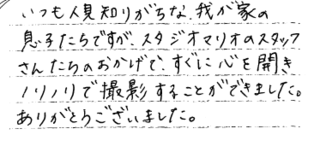 いつも人見知りがちな、我が家の
息子たちですが、スタジオマリオのスタッフ
さんたちのおかげで、すぐに心を開き
ノリノリで撮影することができました。
ありがとうございました。